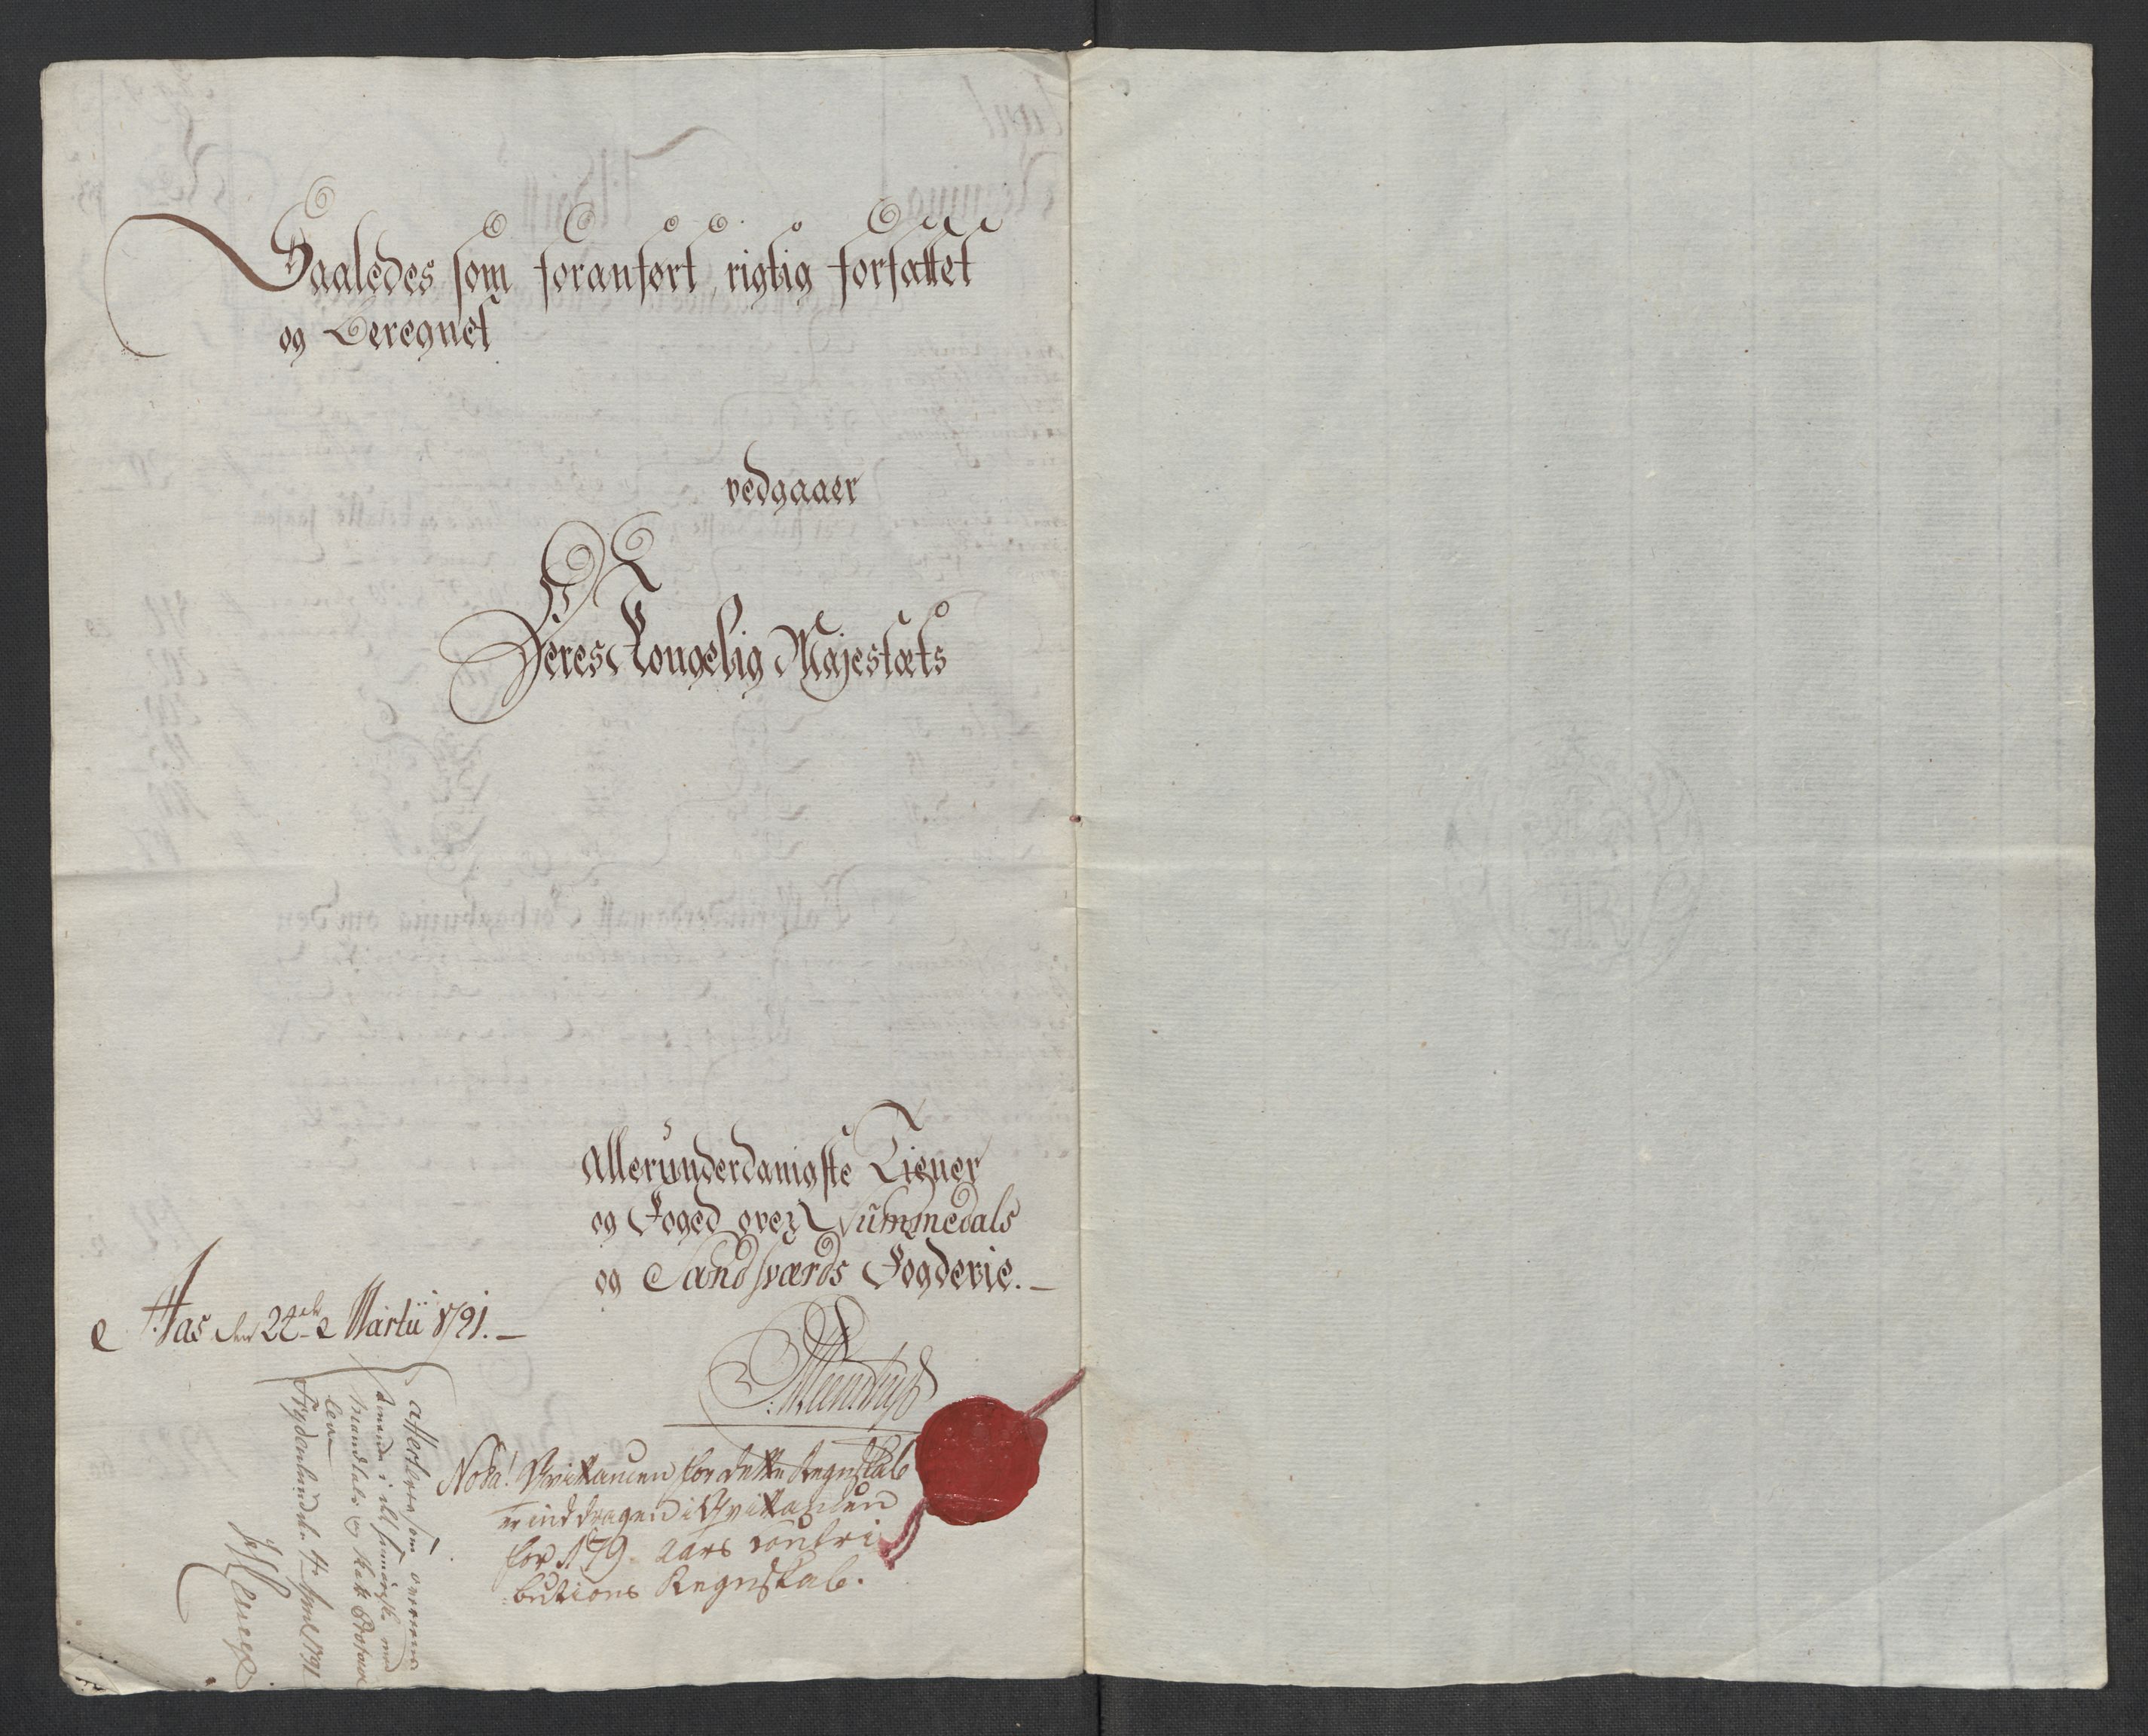 Saaledes som foranført, rigtig forfattet
og Beregnet
vedgaaer
Deres Kongelig Majestæts
Allerunderdanigste Tiener
og Foged over Nummedals
og Sandsværds Fogderie.
Aas den 24de Martii 1791.
Nota! Qvittancen for dette Regnskab
er inddragen i Qvittancen
for 179 Aars Contri
butions Regnskab.
attesteres som overeens
med
og
4de April 1791